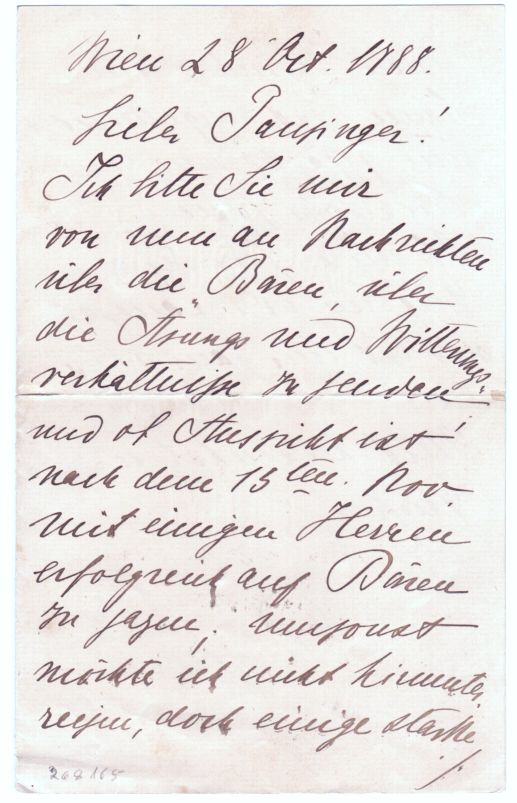 Wien 28 Oct. 1888.
Lieber Pausinger!
Ich bitte Sie mir
von nun an Nachrichten
über die Bären, über
die Äsungs und Witterungs-
verhältnisse zu senden,
und ob Aussicht ist
nach dem 15ten. Nov
mit einigen Herren
erfolgreich auf Bären
zu jagen; umsonst
möchte ich nicht hinunter
reisen, doch einige starke
268165